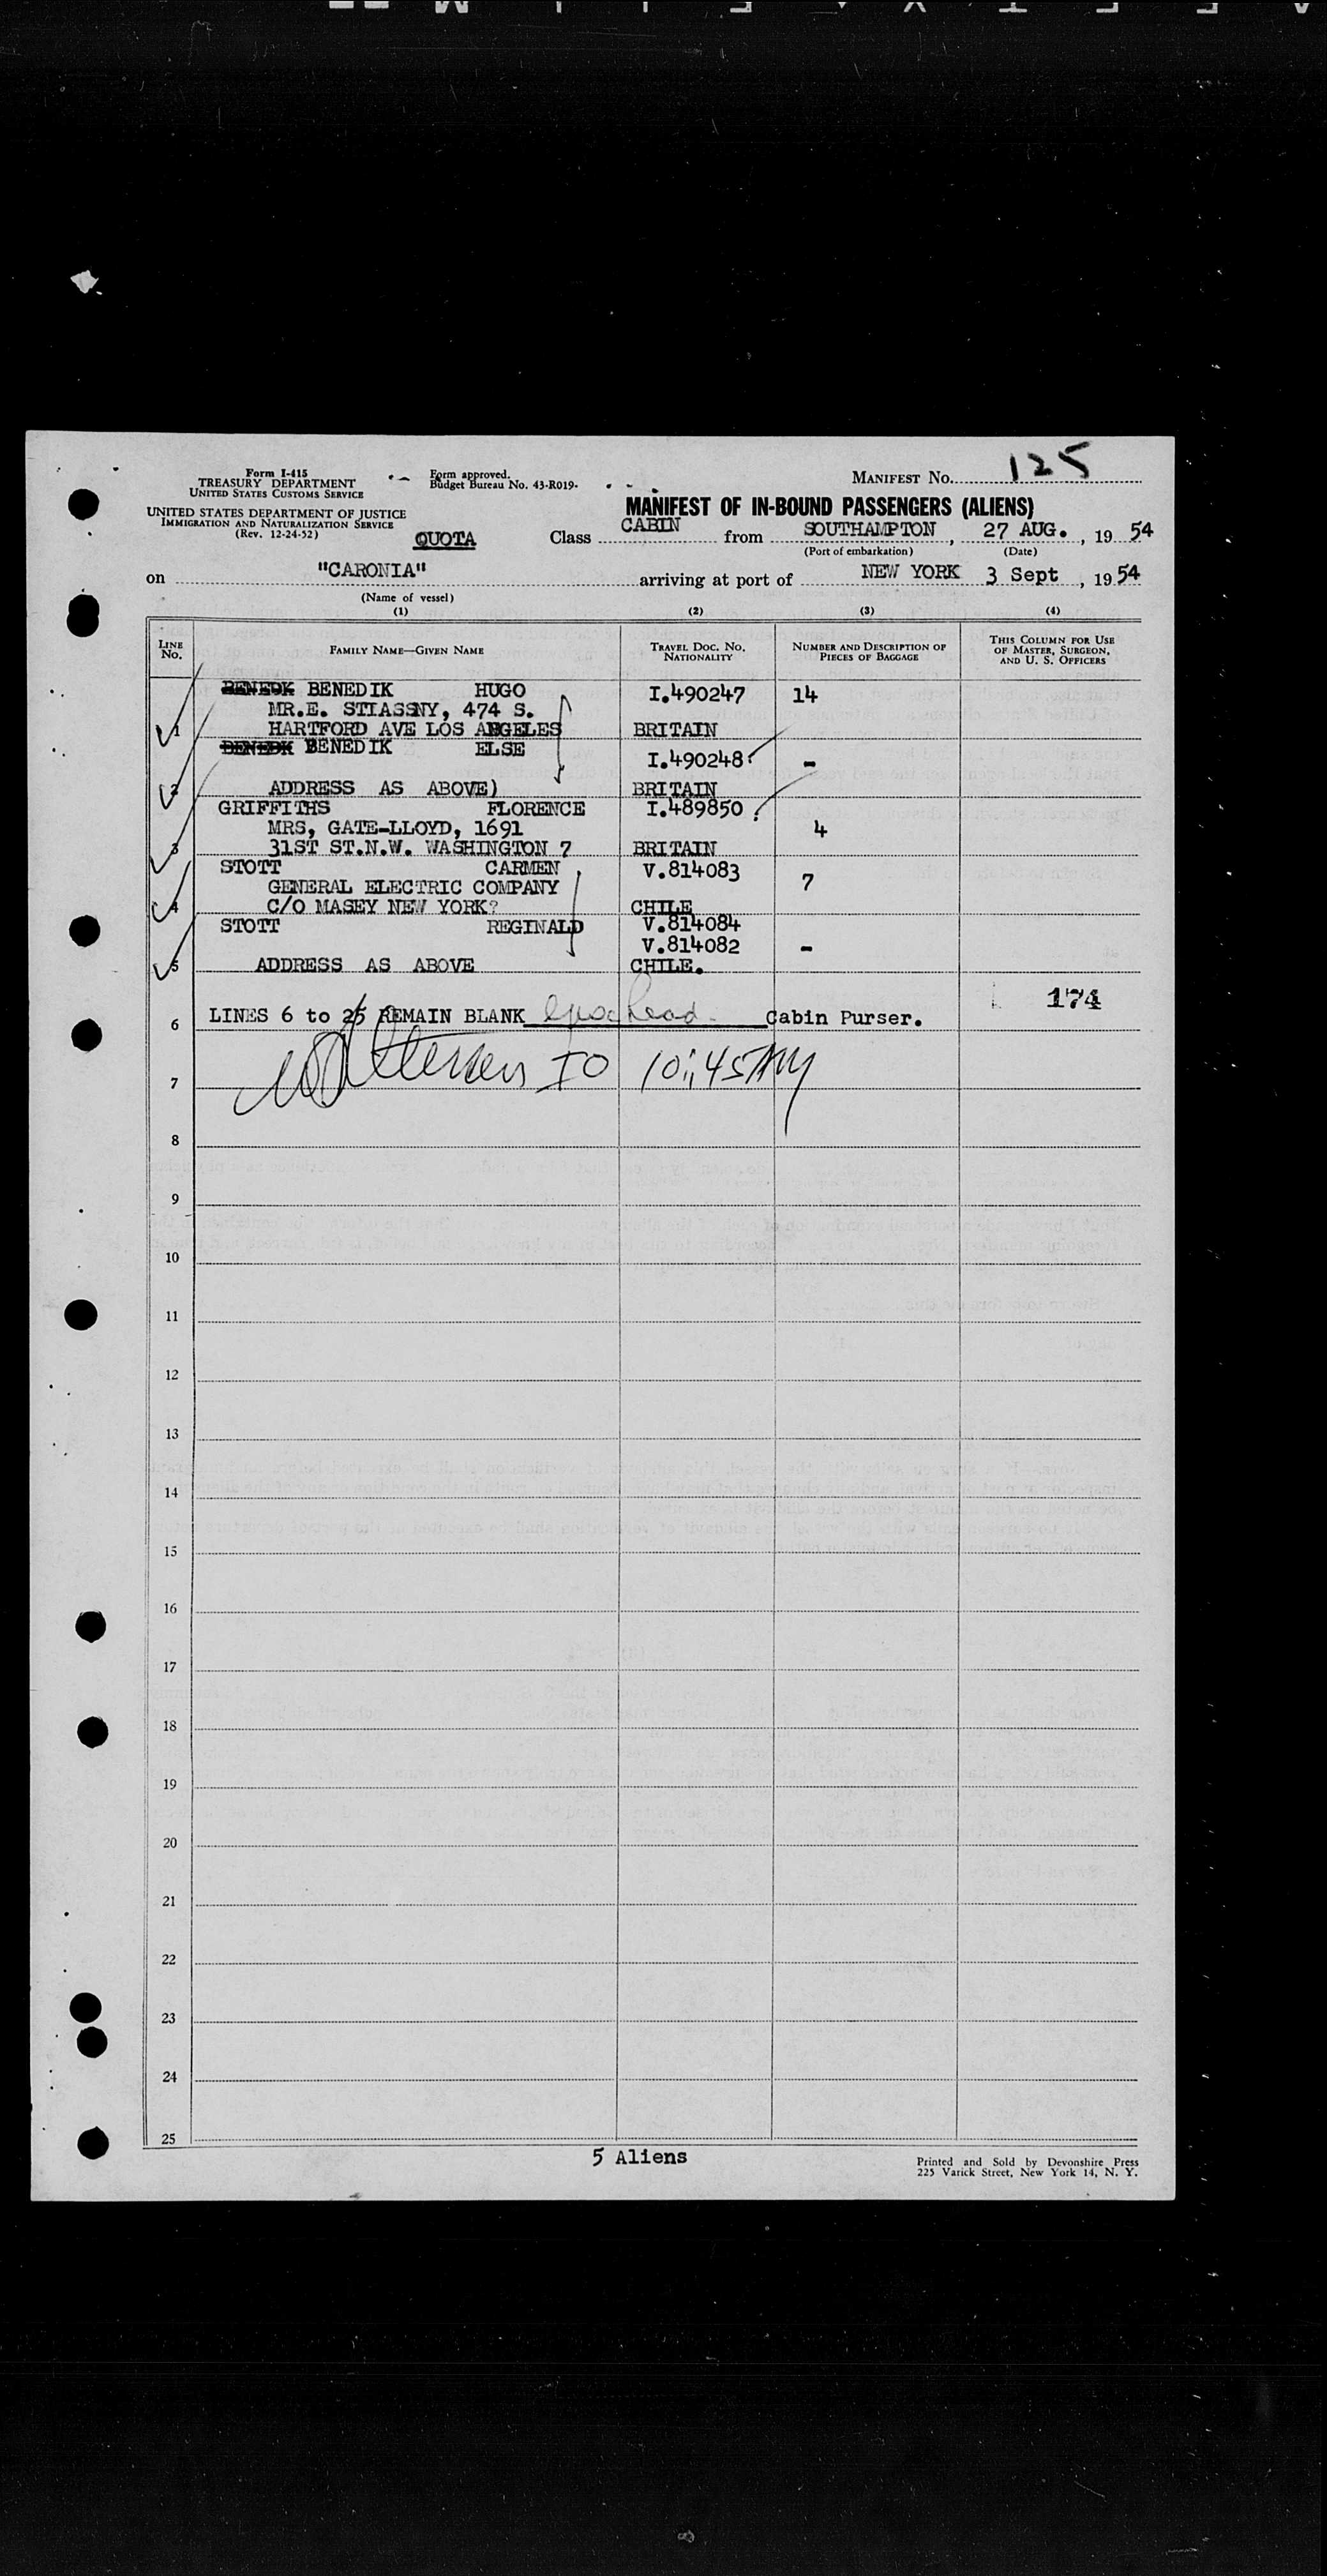 Form I-415
TREASURY DEPARTMENT
UNITED STATES CUSTOMS SERVICE
UNITED STATES DEPARTMENT OF JUSTICE
IMMIGRATION AND NATURALIZATION SERVICE
(Rev. 12-24-52)
Form approved.
Budget Bureau No. 43-R019-
MANIFEST No. 125
MANIFEST OF IN-BOUND PASSENGERS (ALIENS)
QUOTA Class CABIN from SOUTHAMPTON, 27 AUG., 19 54
(Port of embarkation) (Date)
on "CARONIA" arriving at port of NEW YORK 3 Sept, 19 54
(Name of vessel)
(1) (2) (3) (4)
LINE No. FAMILY NAME—GIVEN NAME TRAVEL DOC. No. NATIONALITY NUMBER AND DESCRIPTION OF PIECES OF BAGGAGE THIS COLUMN FOR USE OF MASTER, SURGEON, AND U. S. OFFICERS
BENEDK BENEDIK HUGO I.490247 14
MR.E. STIASSNY, 474 S.
1 HARTFORD AVE LOS ANGELES BRITAIN
BENEDK BENEDIK ELSE I.490248 -
2 ADDRESS AS ABOVE) BRITAIN
GRIFFITHS FLORENCE I.489850
MRS, GATE-LLOYD, 1691 4
3 31ST ST.N.W. WASHINGTON 7 BRITAIN
STOTT CARMEN V.814083 7
GENERAL ELECTRIC COMPANY
4 C/O MASEY NEW YORK? CHILE
STOTT REGINALD V.814084
V.814082 -
5 ADDRESS AS ABOVE CHILE.
174
6 LINES 6 to 25 REMAIN BLANK Cabin Purser.
7 IO 10:45AM
8
9
10
11
12
13
14
15
16
17
18
19
20
21
22
23
24
25
5 Aliens
Printed and Sold by Devonshire Press
225 Varick Street, New York 14, N. Y.